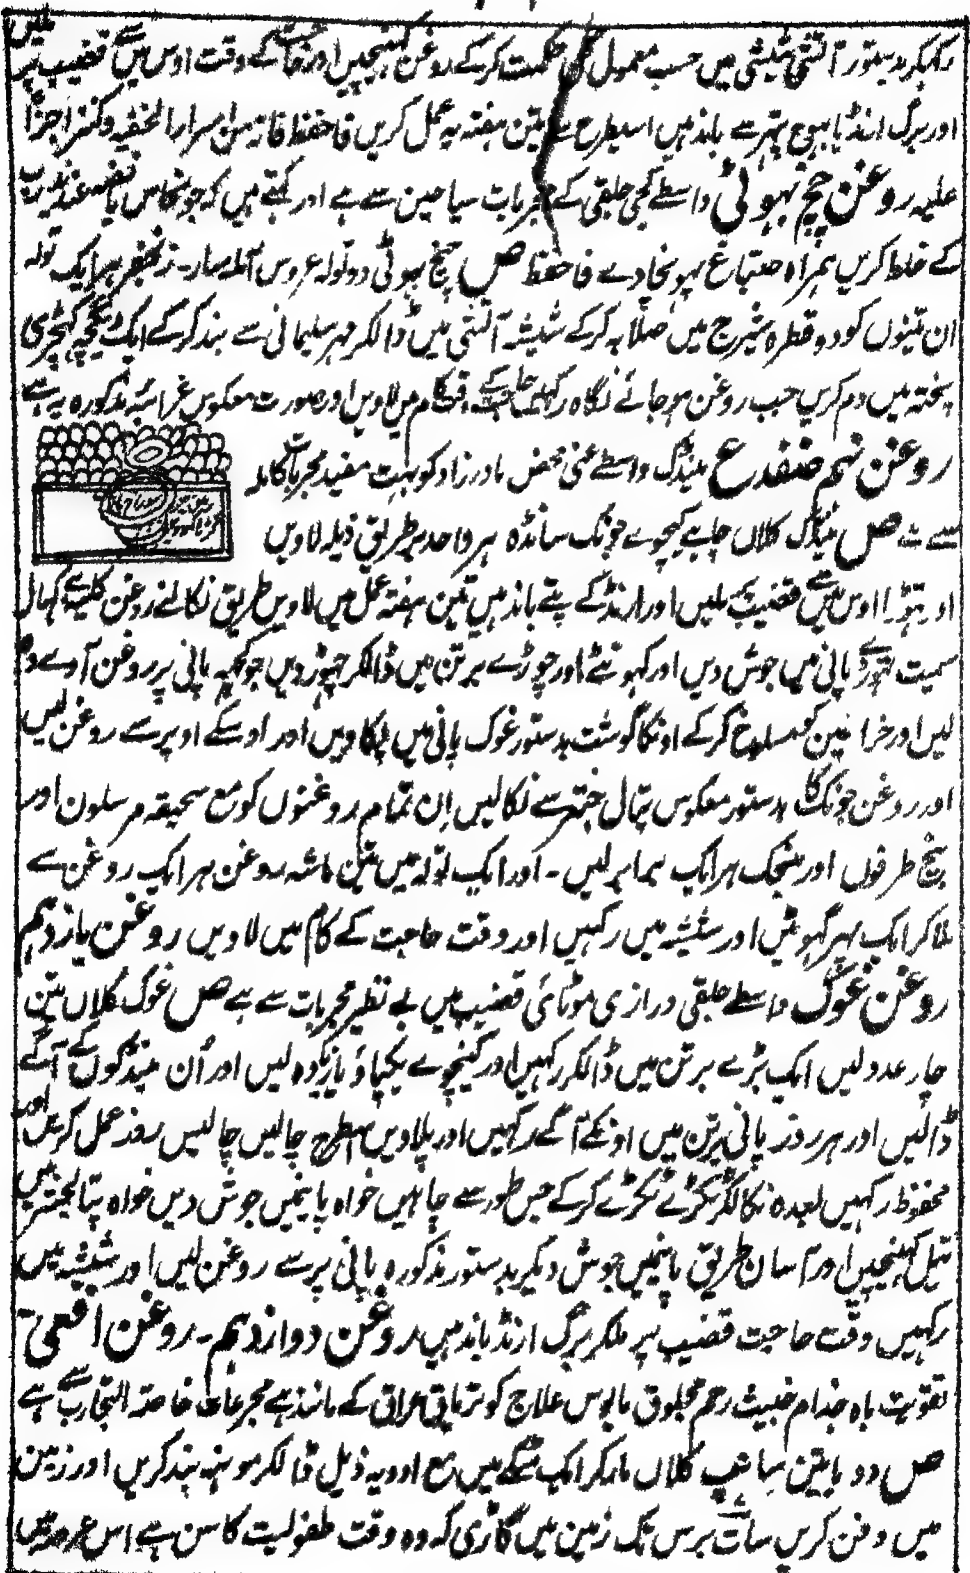 رکہکر بدستور آتشی شیشی میں حسب معمول گل حکمت کرکے روغن کہنچیں اور حاجت کے وقت اوس میں سے قضیب پر ملیں
اور برگ ارنڈ یا بہوج پتر سے باندہیں اسیطرح سے تین ہفتہ یہ عمل کریں فاحفظ فانہ من اسرار الخفیہ وکنز اجزا
علیہ روغن چیچ بہوٹی واسطے کجی حلقی کے مجربات سیاحین سے ہے اور کہتے ہیں کہ جو نحاس یا فضہ عند التذویب
کے خلط کریں ہمراہ صنباغ پہونچادے فاحفظ ص چیچ بہوٹی دو تولہ عروس آملہ سار۔ زنجفر ہر ایک تولہ
ان تینوں کو دو قطرہ شیرج میں صلابہ کرکے شیشہ آتشی میں ڈالکر مہر سلیمانی سے بند کرکے ایک دیگچہ کہچڑی
پختہ میں دم کریں جب روغن ہوجائے نگاہ رکہیں حاجت کے وقت کام میں لاویں اور صورت معکوس غرائبہ مذکورہ یہ ہے
روغن نہم ضفدع مینڈک واسطے عنی محض مادرزاد کو بہت مفید مجربات کاملہ
سے ہے ص مینڈک کلاں چاہے کیچوے جونک سانڈہ ہر واحد بطریق ذیل لاویں
او تہوڑا اوس میں سے قضیب پر ملیں اور ارنڈ کے پتے باندہیں تین ہفتہ عمل میں لاویں طریق نکالنے روغن کا یہ ہے کہال
سمیت تہوڑے پانی میں جوش دیں اور گہونٹے اور چوڑے برتن میں ڈالکر چہوڑ دیں جو کچہہ پانی پر روغن آوے وہ
لیں اور خراطین کو مسلوخ کرکے اونکا گوشت بدستور غوک پانی میں پکاویں اور اوسکے اوپر سے روغن لیں
اور روغن جونک کا بدستور معکوس پتال جنتر سے نکالیں ان تمام روغنوں کو مع سحیقہ مر سلون اور
بیخ طرفوں اور منجک ہر ایک برابر لیں۔ اور ایک تولہ میں تین ماشہ روغن ہر ایک روغن سے
ملاکر ایک پہر گہوٹیں اور شیشہ میں رکہیں اور وقت حاجت کے کام میں لاویں روغن یازدہم
روغن غوک واسطے حلقی درازی موٹائی قضیب میں بے نظیر مجربات سے ہے ص غوک کلاں تین
چار عدد لیں ایک بڑے برتن میں ڈالکر رکہیں اور کینچوے یکپاؤ یا زیادہ لیں اور اُن مینڈکوں کے آگے
ڈالیں اور ہر روز پانی برتن میں اونکے آگے رکہیں اور پلاویں اسطرح چالیس چالیس روز عمل کریں اور
محفوظ رکہیں بعدہ نکالکر ٹکڑے ٹکڑے کرکے جس طور سے چاہیں خواہ پانیمیں جوش دیں خواہ پتال جنتر میں
تیل کہینچیں اور آسان طریق پانیمیں جوش دیکر بدستور مذکورہ پانی پر سے روغن لیں اور شیشہ میں
رکہیں وقت حاجت قضیب پر ملکر برگ ارنڈ باندہیں روغن دوازدہم۔ روغن افعی
تقویت باہ جذام خبیث رحم مجلوق مایوس علاج کو تریاقی عراقی کے مانند ہے مجرعات خاصۃ التجارب سے ہے
ص دو یا تین سانپ کلاں مارکر ایک مٹکے میں مع ادویہ ذیل ڈالکر مونہہ بند کریں اور زمین
میں دفن کریں سات برس تک زمین میں گاڑی کہ وہ وقت طفولیت کا سن ہے اس عرصہ میں